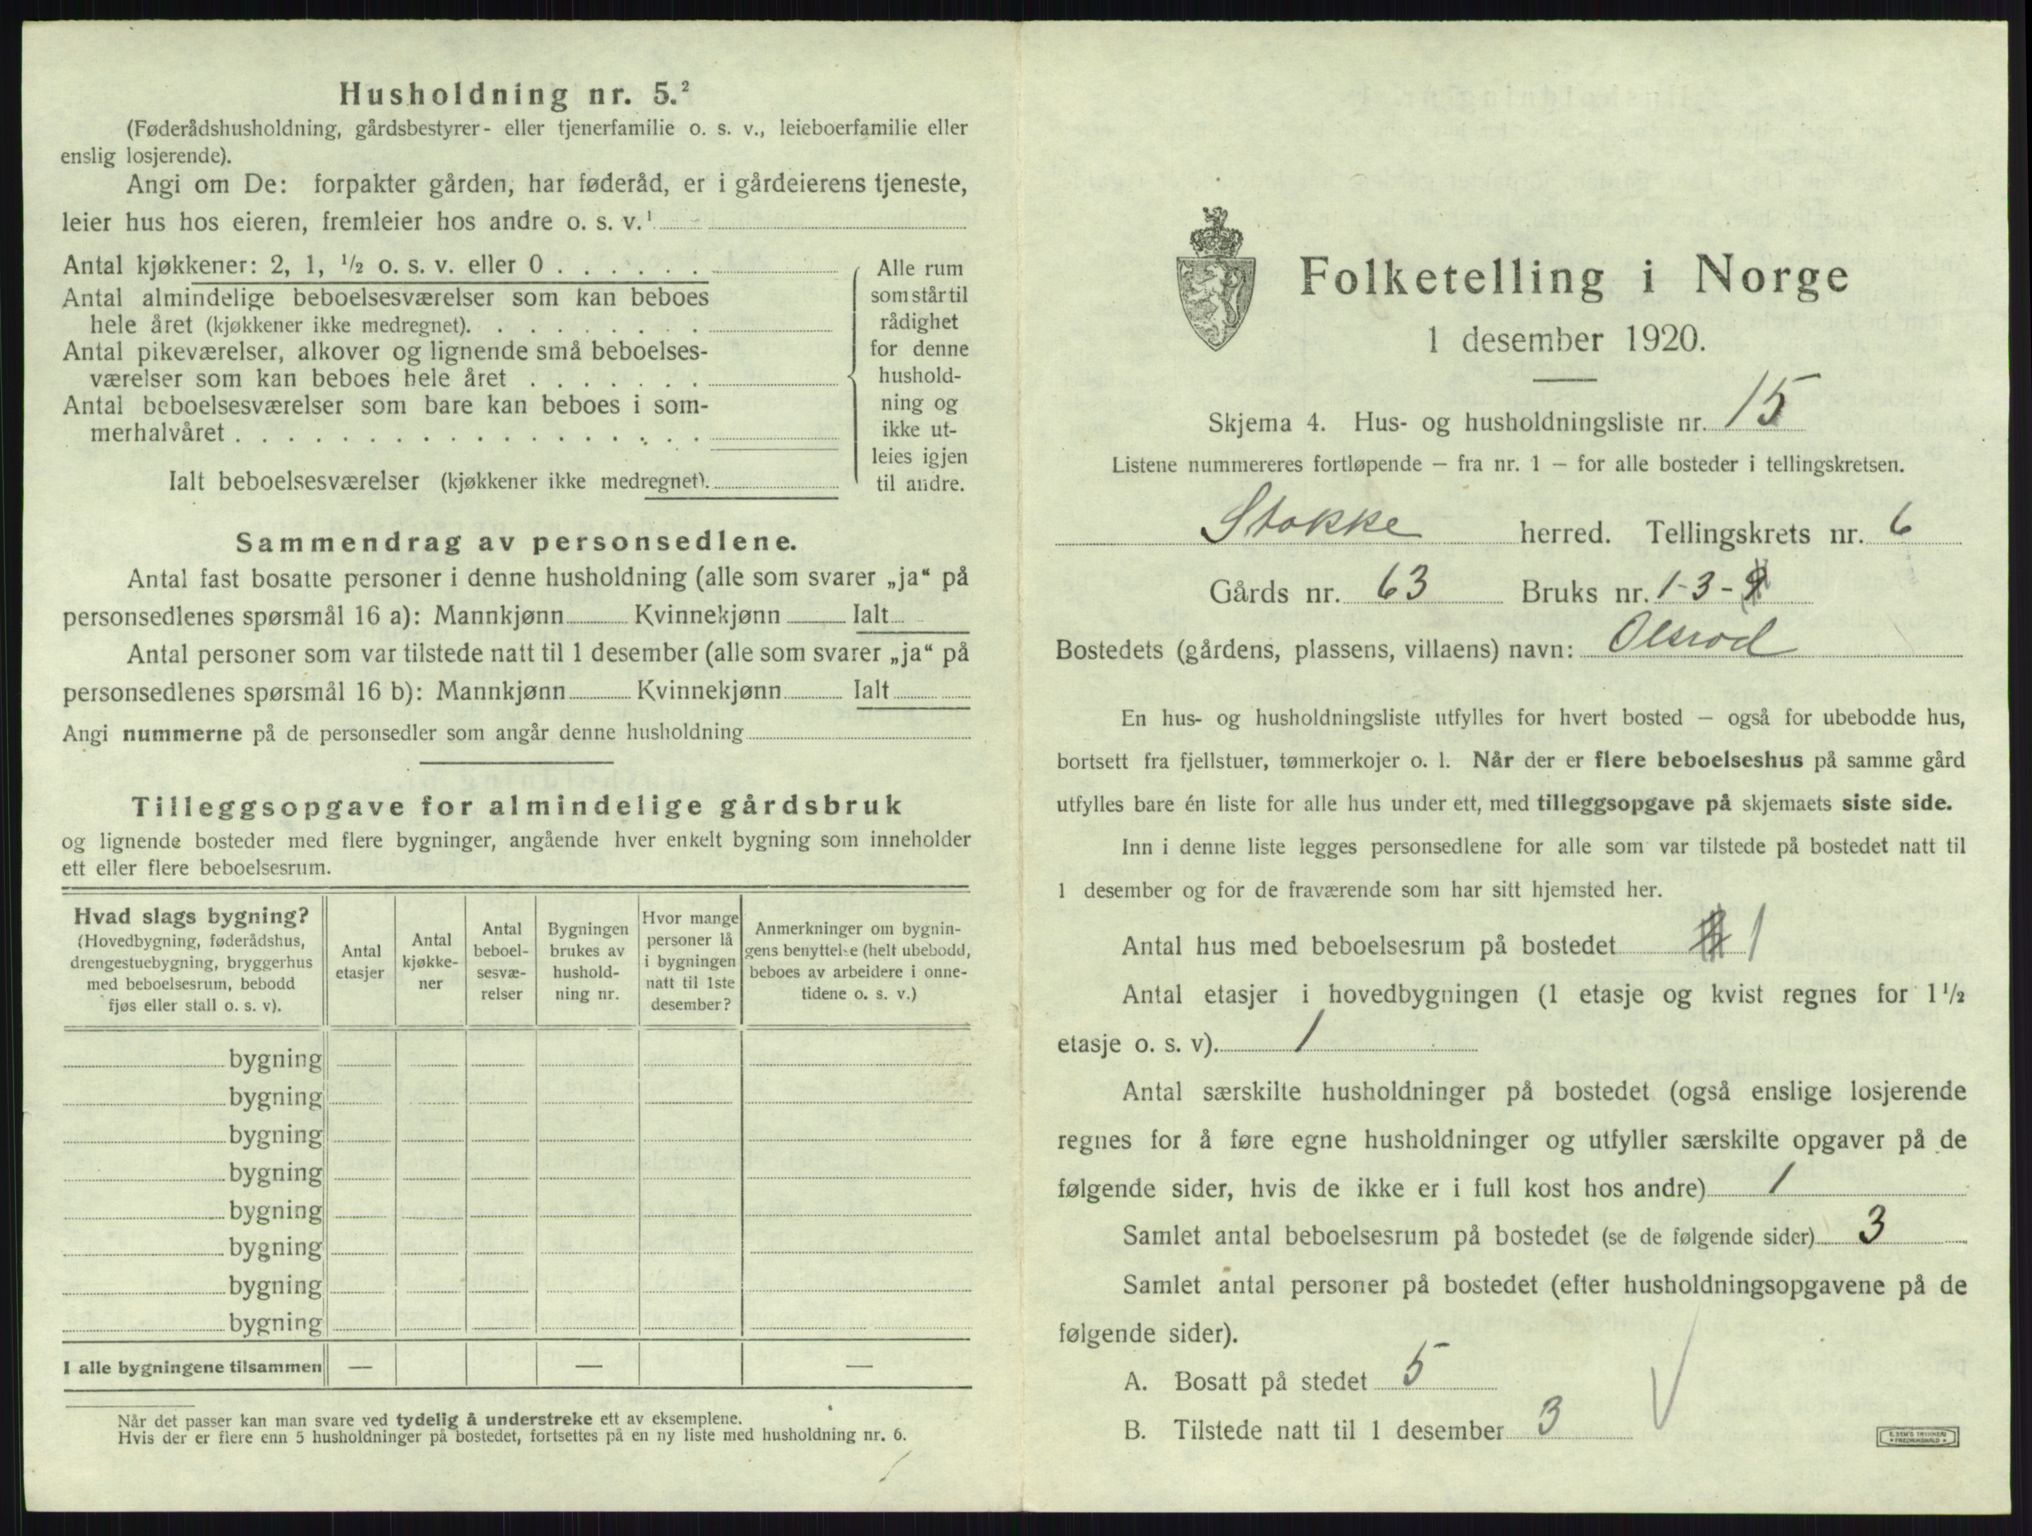 Husholdning nr. 5.²
(Føderådshusholdning, gårdsbestyrer- eller tjenerfamilie o. s. v., leieboerfamilie eller
enslig losjerende).
Angi om De: forpakter gården, har føderåd, er i gårdeierens tjeneste,
leier hus hos eieren, fremleier hos andre o. s. v.¹
Antal kjøkkener: 2, 1, ½ o. s. v. eller 0 . . . . . .
Antal almindelige beboelsesværelser som kan beboes
hele året (kjøkkener ikke medregnet). . . . . . . . .
Antal pikeværelser, alkover og lignende små beboelses-
værelser som kan beboes hele året . . . . . . .
Antal beboelsesværelser som bare kan beboes i som-
merhalvåret . . . . . . . . . . . . . . . . . .
Ialt beboelsesværelser (kjøkkener ikke medregnet).
Alle rum
som står til
rådighet
for denne
hushold-
ning og
ikke ut-
leies igjen
til andre.
Sammendrag av personsedlene.
Antal fast bosatte personer i denne husholdning (alle som svarer „ja“ på
personsedlenes spørsmål 16 a): Mannkjønn Kvinnekjønn Ialt
Antal personer som var tilstede natt til 1 desember (alle som svarer „ja“ på
personsedlenes spørsmål 16 b): Mannkjønn Kvinnekjønn Ialt
Angi nummerne på de personsedler som angår denne husholdning
Tilleggsopgave for almindelige gårdsbruk
og lignende bosteder med flere bygninger, angående hver enkelt bygning som inneholder
ett eller flere beboelsesrum.
Hvad slags bygning?
(Hovedbygning, føderådshus,
drengestuebygning, bryggerhus
med beboelsesrum, bebodd
fjøs eller stall o. s. v).
Antal
etasjer
Antal
kjøkke-
ner
Antal
beboel-
sesvæ-
relser
Bygningen
brukes av
hushold-
ning nr.
Hvor mange
personer lå
i bygningen
natt til 1ste
desember?
Anmerkninger om bygnin-
gens benyttelse (helt ubebodd,
beboes av arbeidere i onne-
tidene o. s. v.)
bygning
bygning
bygning
bygning
bygning
bygning
bygning
bygning
I alle bygningene tilsammen — — —
Når det passer kan man svare ved tydelig å understreke ett av eksemplene.
Hvis der er flere enn 5 husholdninger på bostedet, fortsettes på en ny liste med husholdning nr. 6.
Folketelling i Norge
1 desember 1920.
Skjema 4. Hus- og husholdningsliste nr. 15
Listene nummereres fortløpende – fra nr. 1 – for alle bosteder i tellingskretsen.
Stokke herred. Tellingskrets nr. 6
Gårds nr. 63 Bruks nr. 1-3-
Bostedets (gårdens, plassens, villaens) navn: Olsrød
En hus- og husholdningsliste utfylles for hvert bosted – også for ubebodde hus,
bortsett fra fjellstuer, tømmerkojer o. l. Når der er flere beboelseshus på samme gård
utfylles bare én liste for alle hus under ett, med tilleggsopgave på skjemaets siste side.
Inn i denne liste legges personsedlene for alle som var tilstede på bostedet natt til
1 desember og for de fraværende som har sitt hjemsted her.
Antal hus med beboelsesrum på bostedet 1
Antal etasjer i hovedbygningen (1 etasje og kvist regnes for 1½
etasje o. s. v). 1
Antal særskilte husholdninger på bostedet (også enslige losjerende
regnes for å føre egne husholdninger og utfyller særskilte opgaver på de
følgende sider, hvis de ikke er i full kost hos andre) 1
Samlet antal beboelsesrum på bostedet (se de følgende sider) 3
Samlet antal personer på bostedet (efter husholdningsopgavene på de
følgende sider).
A. Bosatt på stedet 5
B. Tilstede natt til 1 desember 3